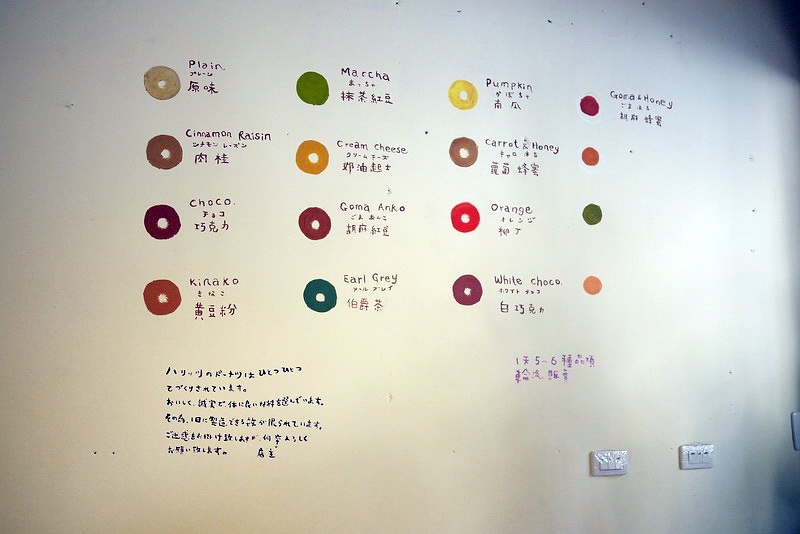 Plain
プレーン
原味
Cinnamon Raisin
シナモン レーズン
肉桂
Choco.
チョコ
巧克力
Kinako
きなこ
黄豆粉
Marcha
まっちゃ
抹茶紅豆
Cream cheese
クリームチーズ
奶油起士
Goma Anko
ごまあんこ
胡麻紅豆
Earl Grey
アールグレイ
伯爵茶
Pumpkin
かぼちゃ
南瓜
Carrot & Honey
蘿蔔 蜂蜜
Orange
オレンジ
柳丁
White choco.
ホワイト チョコ
白巧克力
Goma & Honey
胡麻 蜂蜜
ハリッツのドーナツは ひとつひとつ
てづくりされています。
おいしく、誠実で、体に良い材料を選んでいます。
その為、1日に製造できる数が限られています。
ご迷惑をお掛け致しますが、何卒よろしく
お願い致します。 店主
1天5~6種品項
輪流販賣